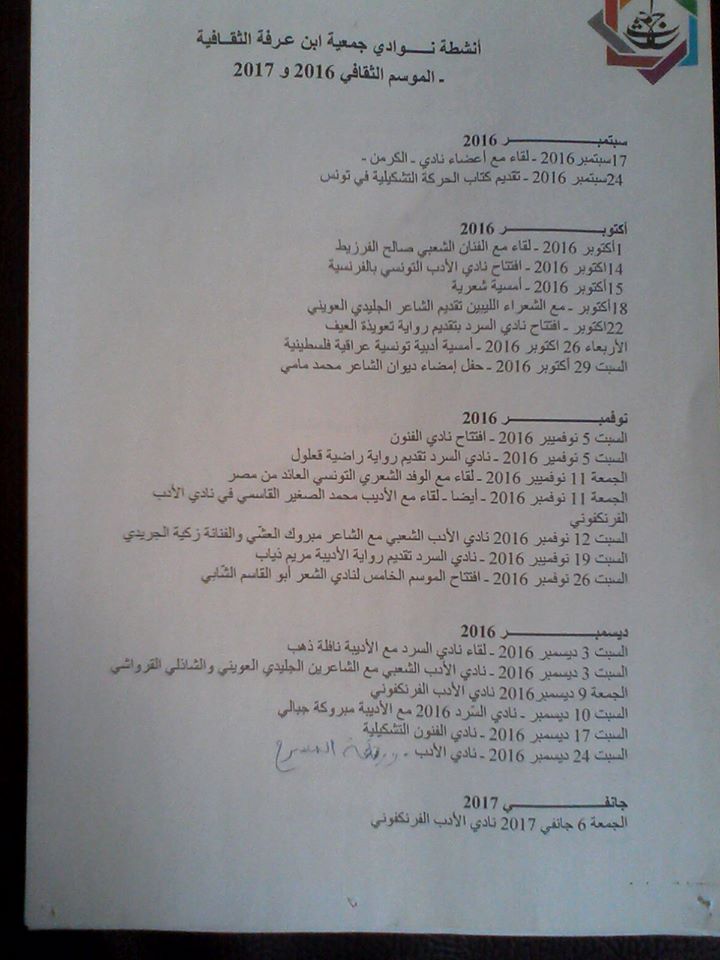 أنشطة نـــوادي جمعية ابن عرفة الثقـافية
ـ الموسم الثقافي 2016 و 2017
سبتمبـــــــــــــــــر 2016
17سبتمبر 2016 ـ لقاء مع أعضاء نادي ـ الكرمن ـ
24سبتمبر 2016 ـ تقديم كتاب الحركة التشكيلية في تونس
أكتوبـــــــــــــــــر 2016
1أكتوبر 2016 ـ لقاء مع الفنان الشعبي صالح الفرزيط
14اكتوبر 2016 ـ افتتاح نادي الأدب التونسي بالفرنسية
15أكتوبر 2016 ـ أمسية شعرية
18أكتوبر ـ مع الشعراء الليبين تقديم الشاعر الجليدي العويني
22اكتوبر ـ افتتاح نادي السرد بتقديم رواية تعويذة العيف
الأربعاء 26 اكتوبر 2016 ـ أمسية أدبية تونسية عراقية فلسطينية
السبت 29 أكتوبر 2016 ـ حفل إمضاء ديوان الشاعر محمد مامي
نوفمبـــــــــــــــــر 2016
السبت 5 نوفمبر 2016 ـ افتتاح نادي الفنون
السبت 5 نوفمبر 2016 ـ نادي السرد تقديم رواية راضية قعلول
الجمعة 11 نوفمبر 2016 ـ لقاء مع الوفد الشعري التونسي العائد من مصر
الجمعة 11 نوفمبر 2016 ـ أيضا ـ لقاء مع الأديب محمد الصغير القاسمي في نادي الأدب
الفرنكفوني
السبت 12 نوفمبر 2016 نادي الأدب الشعبي مع الشاعر مبروك العشّي والفنانة زكية الجريدي
السبت 19 نوفمبر 2016 ـ نادي السرد تقديم رواية الأديبة مريم ذياب
السبت 26 نوفمبر 2016 ـ افتتاح الموسم الخامس لنادي الشعر أبو القاسم الشّابي
ديسمبـــــــــــــــــر 2016
السبت 3 ديسمبر 2016 ـ لقاء نادي السرد مع الأديبة نافلة ذهب
السبت 3 ديسمبر 2016 ـ نادي الأدب الشعبي مع الشاعرين الجليدي العويني والشاذلي القرواشي
الجمعة 9 ديسمبر 2016 نادي الأدب الفرنكفوني
السبت 10 ديسمبر ـ نادي السّرد 2016 مع الأديبة مبروكة جبالي
السبت 17 ديسمبر 2016 ـ نادي الفنون التشكيلية
السبت 24 ديسمبر 2016 ـ نادي الأدب ـ المسرح
جانفـــــــــــــــــي 2017
الجمعة 6 جانفي 2017 نادي الأدب الفرنكفوني